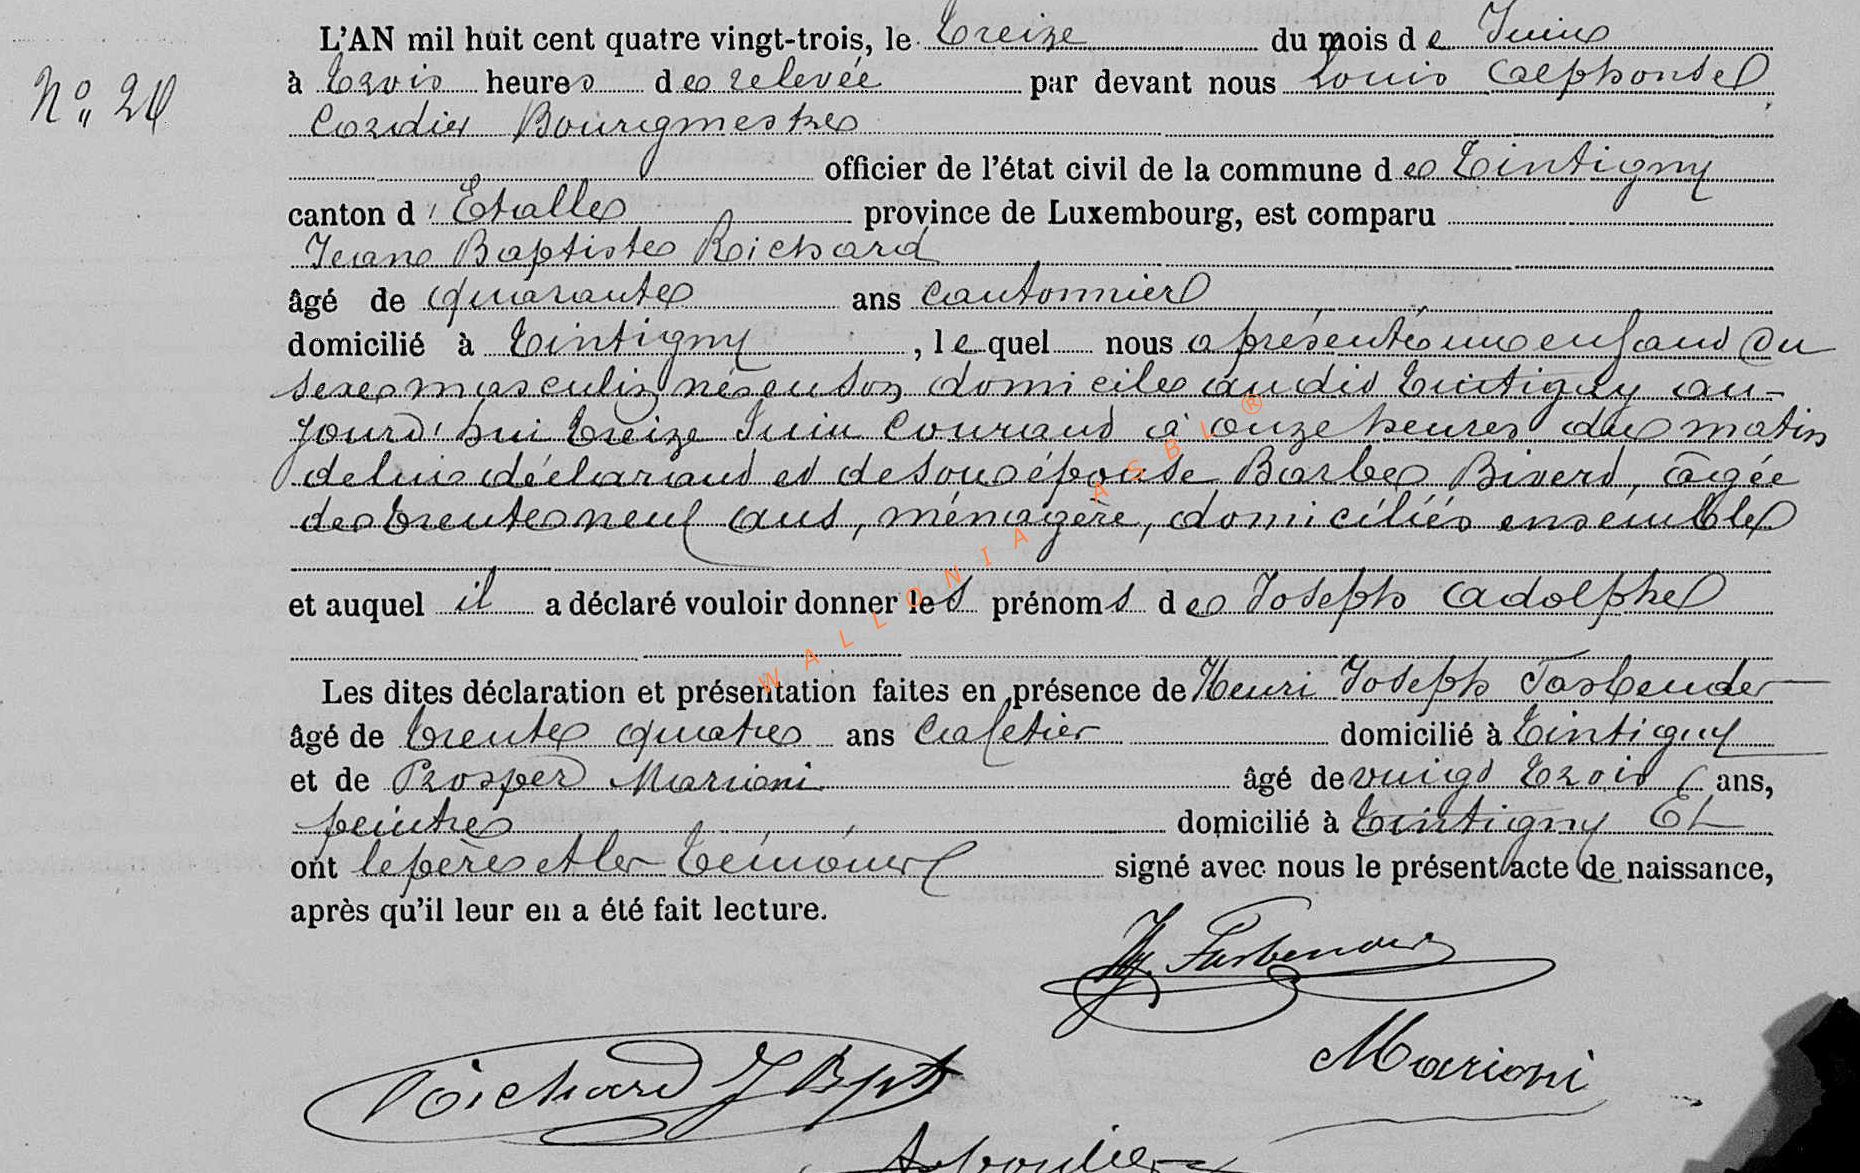 L'AN mil huit cent quatre vingt-trois, le treize du mois de Juin
à trois heures de relevée par devant nous Louis Alphonse
N° 20
Cordier Bourgmestre
officier de l'état civil de la commune de Tintigny
canton d'Etalle province de Luxembourg, est comparu
Jean Baptiste Richard
âgé de quarante ans cantonnier
domicilié à Tintigny, lequel nous a présenté un enfant du
sexe masculin né en son domicile au dit Tintigny au-
jourd'hui treize Juin courant à onze heures du matin
de lui déclarant et de son épouse Barbe Bivert, âgée
de trente neuf ans, ménagère, domiciliés ensemble
et auquel il a déclaré vouloir donner les prénoms de Joseph Adolphe
Les dites déclaration et présentation faites en présence de Henri Joseph Fasbender
âgé de trente quatre ans cafetier domicilié à Tintigny
et de Prosper Marioni âgé de vingt trois ans,
peintre domicilié à Tintigny Et
ont le père et les témoins signé avec nous le présent acte de naissance,
après qu'il leur en a été fait lecture.
HJ. Fasbender
Marioni
Richard J Bpt
WALLONIA ASBL ®